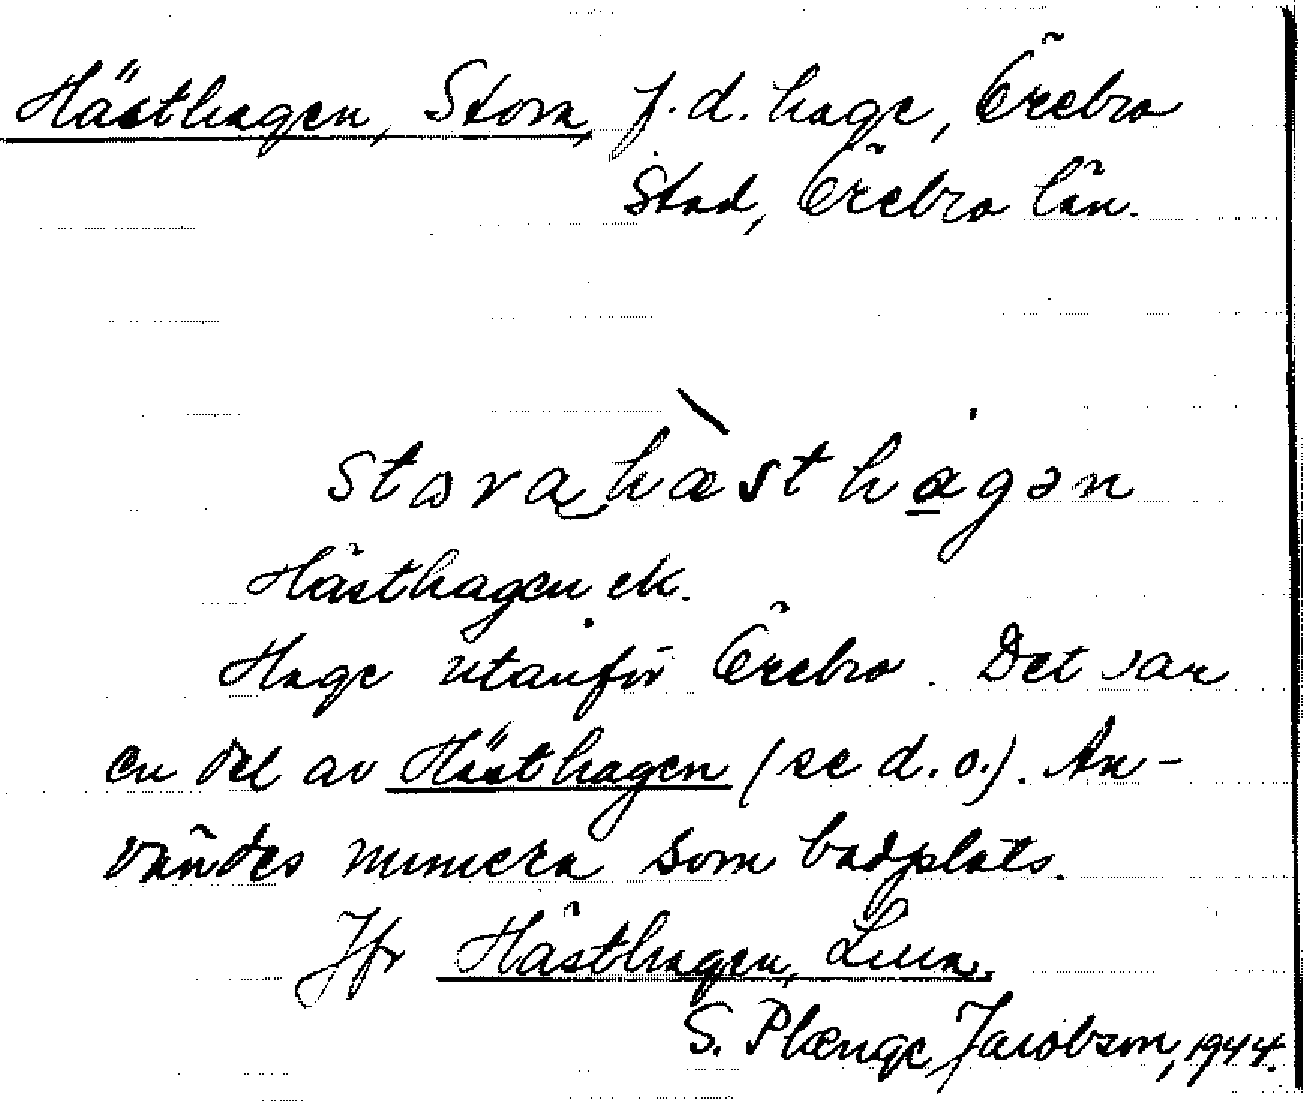 Hästhagen, Stora, f.d. hage, Örebro
Stad, Örebro län.
stora hæsthagən
Hästhagen ek.
Hage utanför Örebro. Det var
en del av Hästhagen (se d.o.). An-
vändes numera som badplats.
Jfr Hästhagen, Lilla.
S. Plænge Jacobson, 1944.